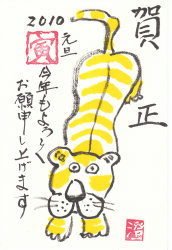 賀正
2010 元旦
寅
今年もよろしく
お願申し上げます